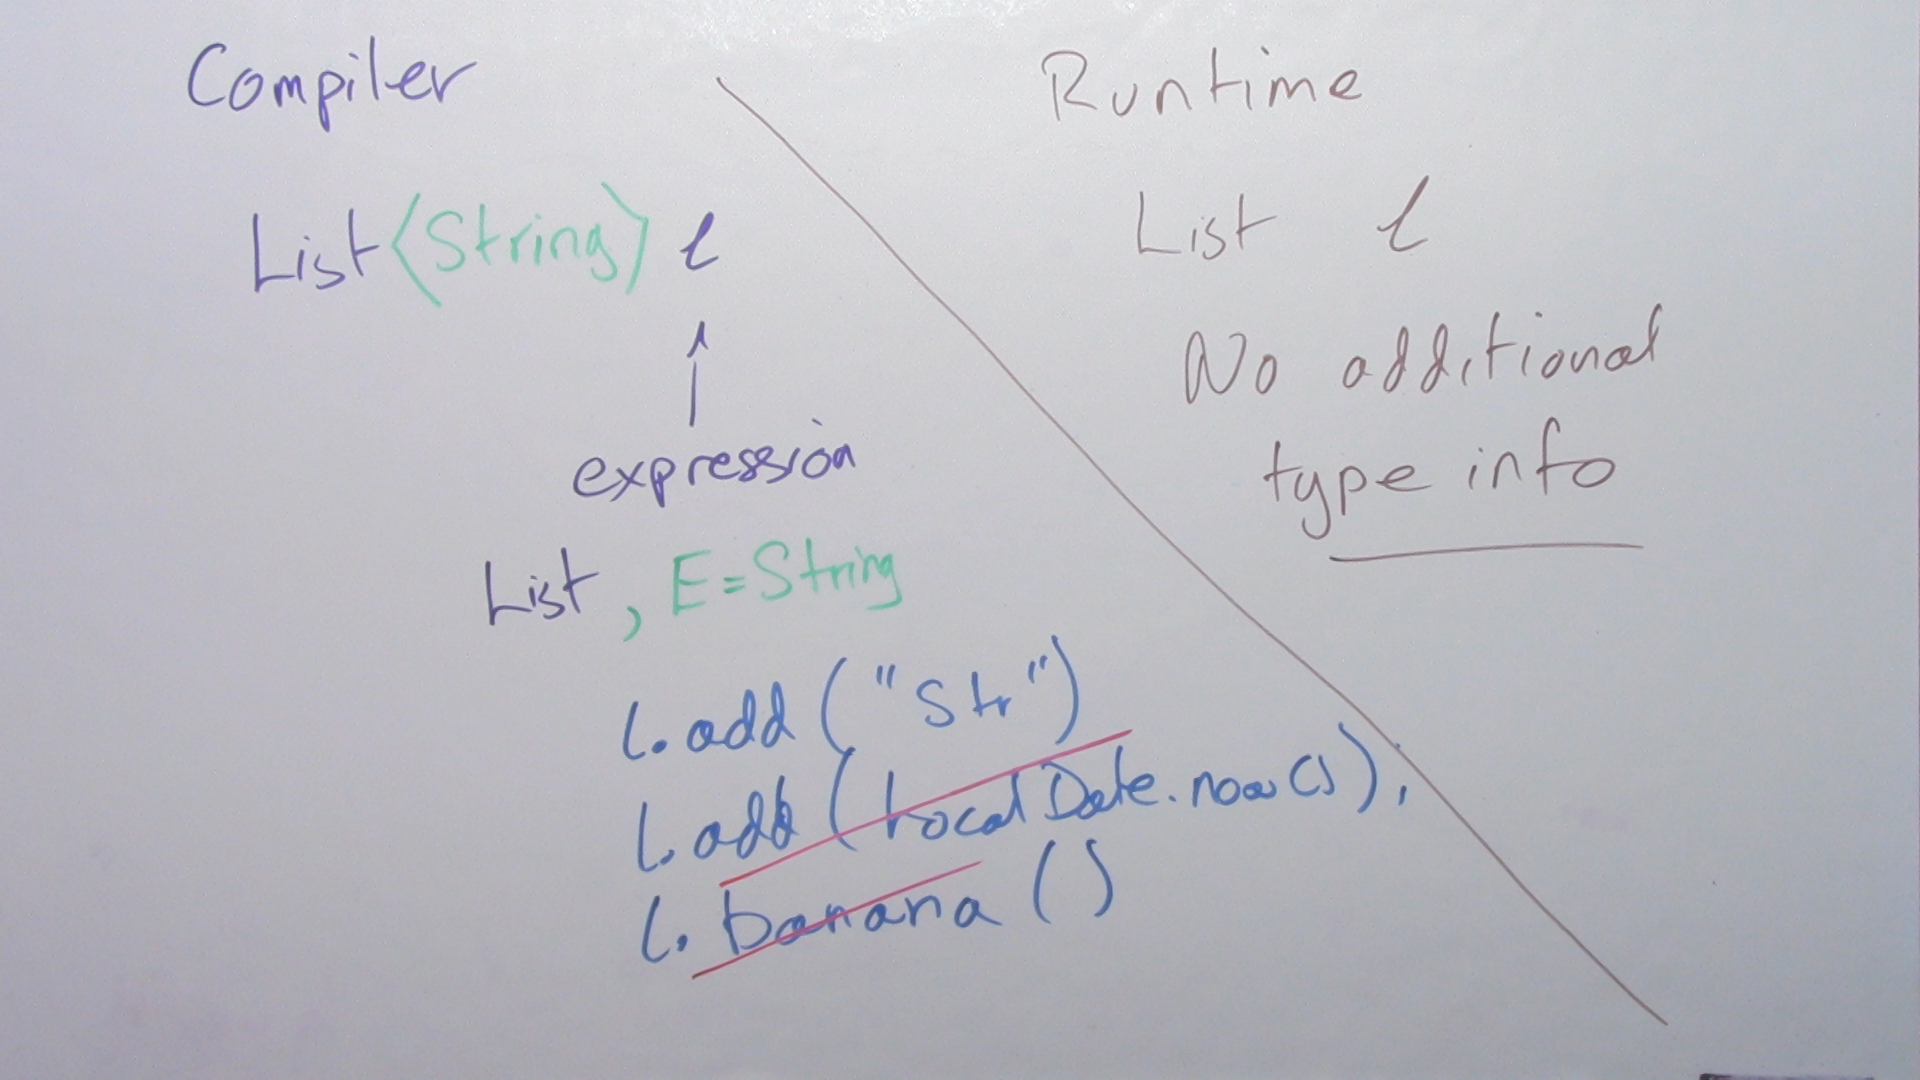 Compiler
List<String> l
expression
List, E=String
l.add("Str")
l.add(LocalDate.now());
l.banana()
Runtime
List l
No additional
type info